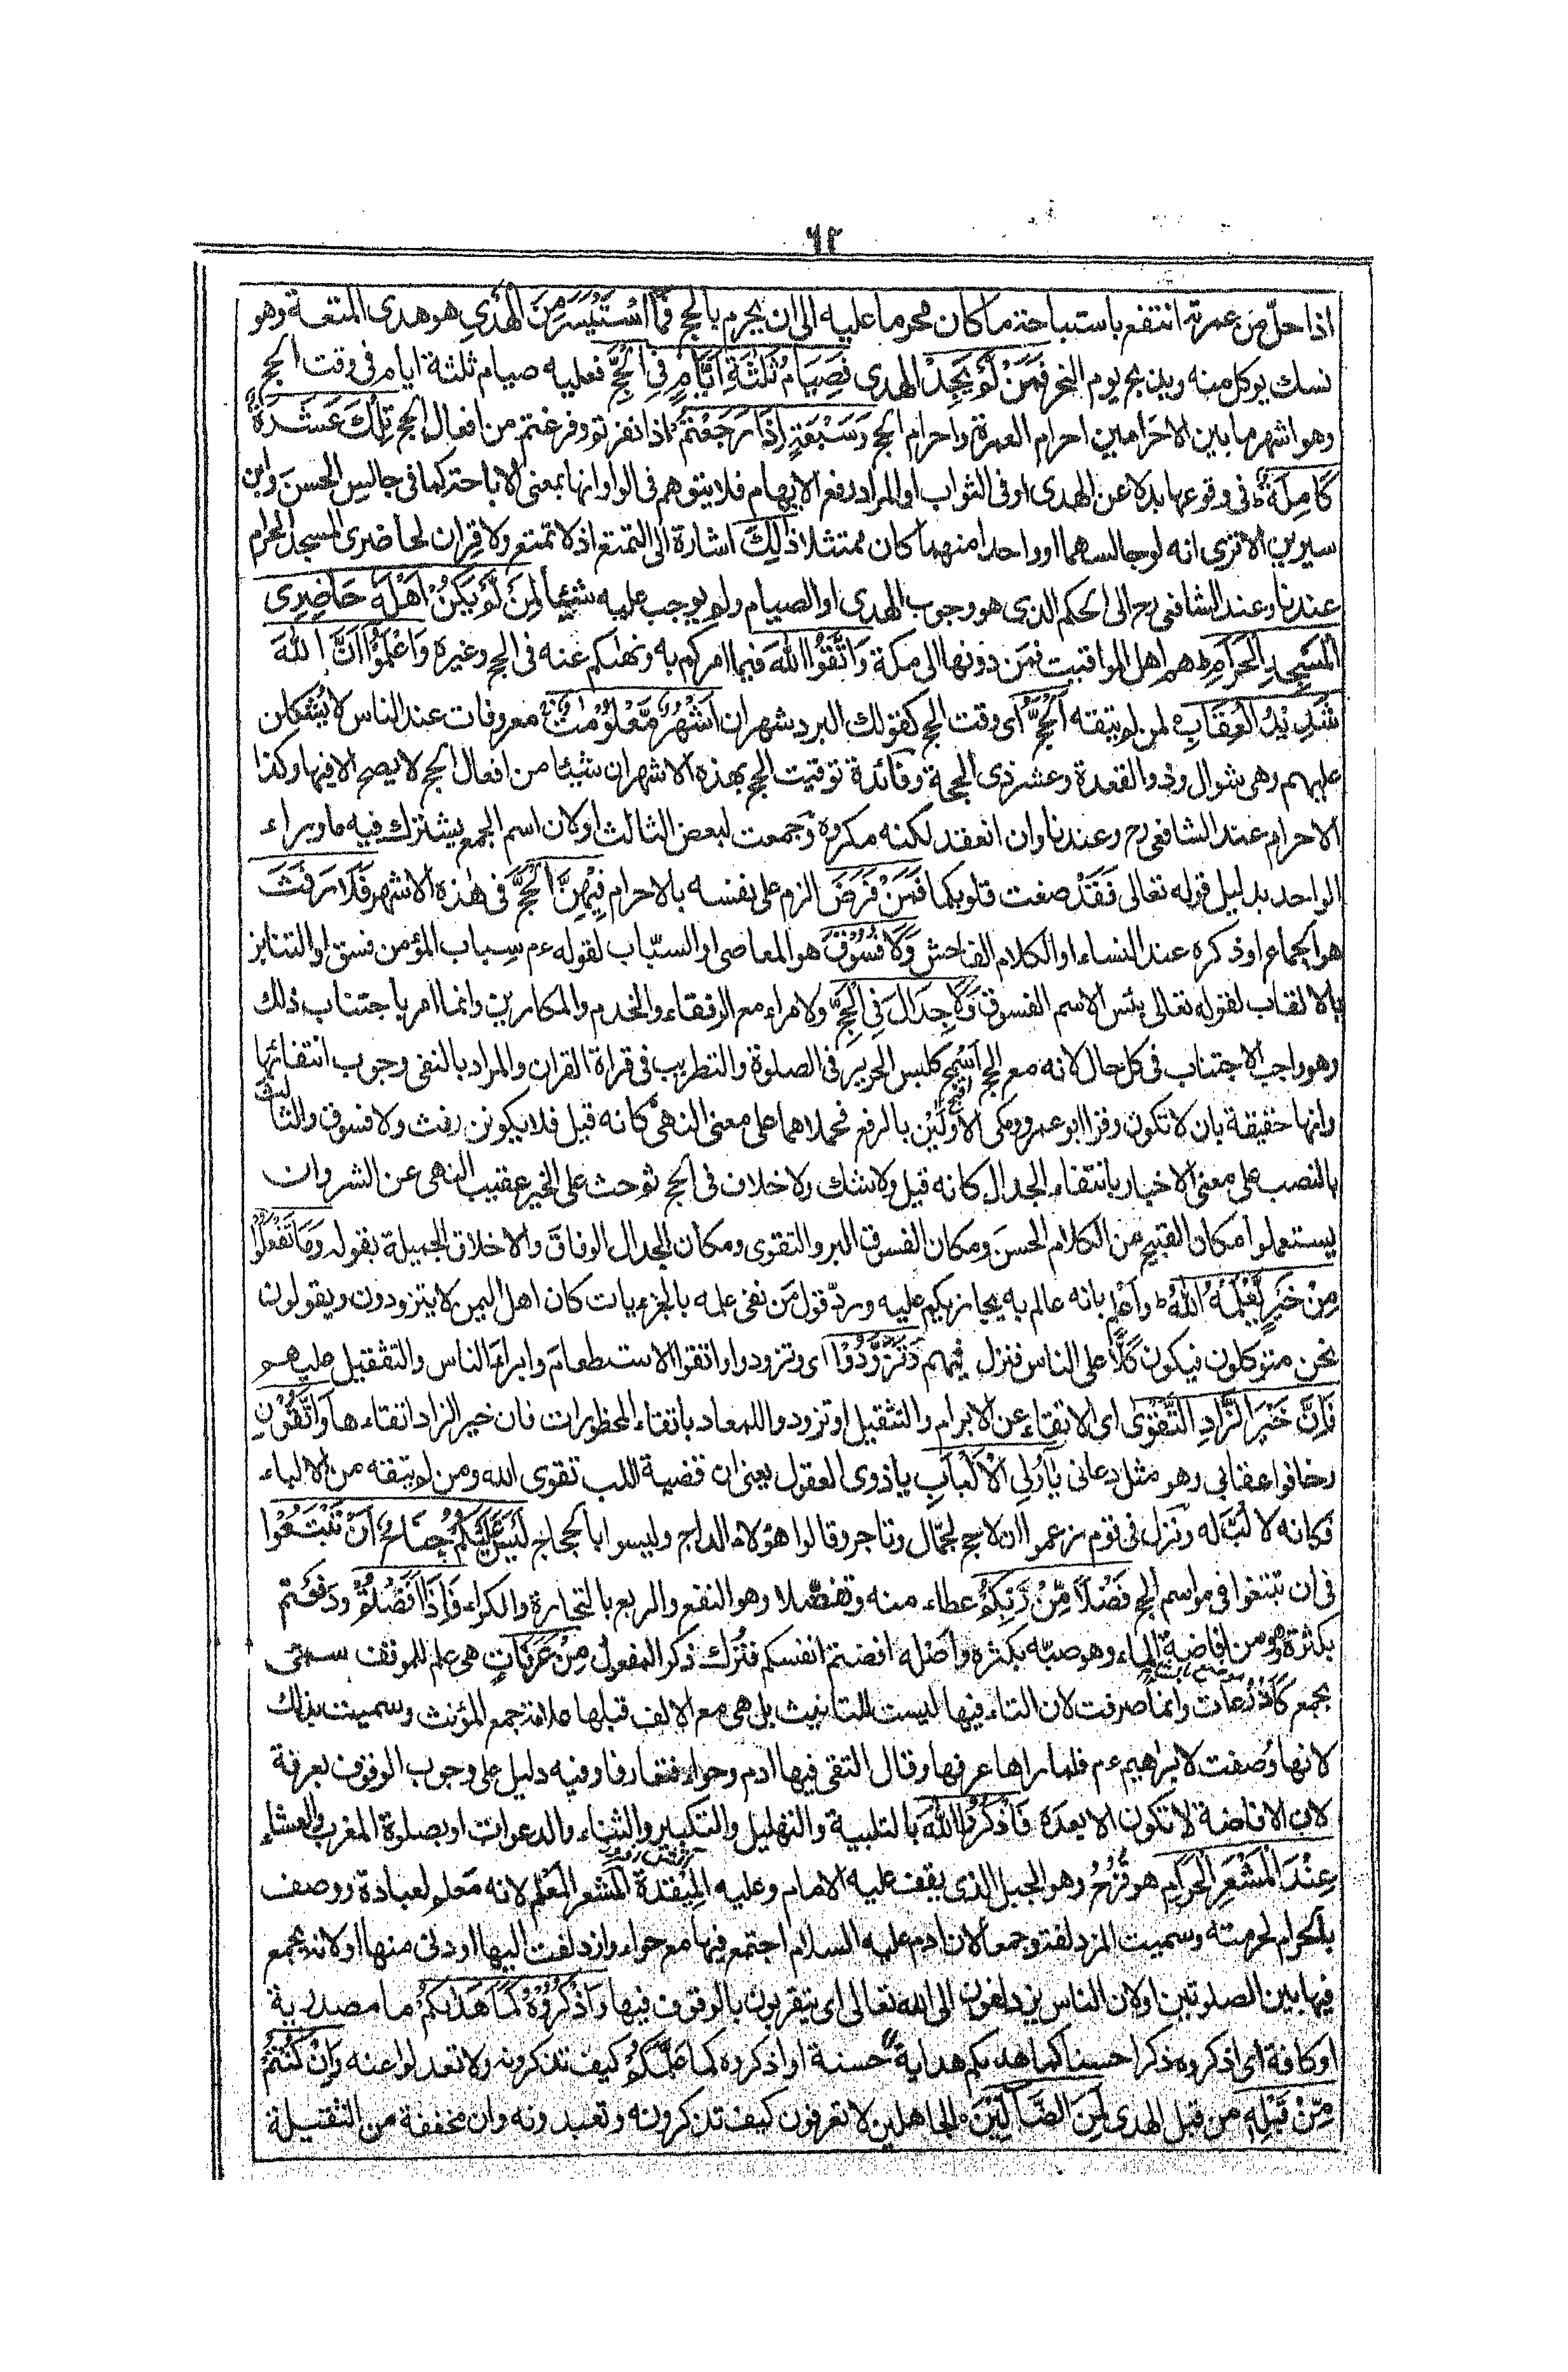 ٦٢
اذا حلّ من عمرته انتفع باستباحة ما كان محرما عليه الى ان يحرم بالحج فَمَا اسْتَيْسَرَ مِنَ الْهَدْيِ هو هدى المتعة وهو
نسك يوكل منه ويذبح يوم النحر فَمَنْ لَّمْ يَجِدْ الهدى فَصِيَامُ ثَلٰثَةِ اَيَّامٍ فِى الْحَجِّ فعليه صيام ثلثة ايام فى وقت الحج
وهو اشهر ما بين الاحرامين احرام العمرة واحرام الحج وَسَبْعَةٍ اِذَا رَجَعْتُمْ اذا نفرتم وفرغتم من افعال الحج تِلْكَ عَشَرَةٌ
كَامِلَةٌ ط فى وقوعها بدلا عن الهدى او فى الثواب او المراد رفع الابهام فلا يتوهم فى الواو انها بمعنى الاباحة كما فى جالس الحسن وابن
سيرين الا ترى انه لو جالسهما او واحدا منهما كان ممتثلا ذٰلِكَ اشارة الى التمتع اذ لا تمتع ولا قران لحاضرى المسجد الحرام
عندنا وعند الشافعى رح الى الحكم الذى هو وجوب الهدى او الصيام ولم يوجب عليه شيئا لِمَنْ لَّمْ يَكُنْ اَهْلُهٗ حَاضِرِى
الْمَسْجِدِ الْحَرَامِ ط هم اهل المواقيت فمن دونها الى مكة وَاتَّقُوا اللّٰهَ فيما امركم به ونهٰكم عنه فى الحج وغيره وَاعْلَمُوْا اَنَّ اللّٰهَ
شَدِيْدُ الْعِقَابِ لمن لم يتقه اَلْحَجُّ اى وقت الحج كقولك البرد شهران اَشْهُرٌ مَّعْلُوْمٰتٌ معروفات عند الناس لا يُشكلن
عليهم وهى شوال وذو القعدة وعشر ذى الحجة وفائدة توقيت الحج بهذه الاشهر ان شيئا من افعال الحج لا يصح الا فيها وكذا
الاحرام عند الشافعى رح وعندنا وان انعقد لكنه مكروه وجمعت لبعض الثالث او لان اسم الجمع يشترك فيه ما وراء
الواحد بدليل قوله تعالى فَقَدْ صغت قلوبكما فَمَنْ فَرَضَ الزم على نفسه بالاحرام فِيْهِنَّ الْحَجَّ فى هٰذه الاشهر فَلَا رَفَثَ
هو الجماع او ذكره عند النساء او الكلام الفاحش وَلَا فُسُوْقَ هو المعاصى او السباب لقوله ءم سباب المؤمن فسق او التنابز
بالالقاب لقوله تعالى بئس الاسم الفسوق وَلَا جِدَالَ فِى الْحَجِّ ولا مراء مع الرفقاء والخدم والمكارين وانما امر باجتناب ذلك
وهو واجب الاجتناب فى كل حال لانه مع الحج اسمج كلبس الحرير فى الصلوة والتطريب فى قراة القران والمراد بالنفى وجوب انتفائها
وانها حقيقة بان لا تكون وقرا ابو عمرو ومكى الاَوّلَيْن بالرفع فحملاهما على معنى النهى كانه قيل فلا يكونن رفث ولا فسوق والثالث
بالنصب على معنى الاخبار بانتفاء الجدال كانه قيل ولا شك ولا خلاف فى الحج ثم حث على الخير عقيب النهى عن الشر وان
يستعملوا مكان القبيح من الكلام الحسن ومكان الفسوق البر والتقوى ومكان الجدال الوفاق والاخلاق الجميلة بقوله وَمَا تَفْعَلُوْا
مِنْ خَيْرٍ يَّعْلَمْهُ اللّٰهُ ط واعلم بانه عالم به يجازيكم عليه وردّ قول من نفى علمه بالجزءيات كان اهل اليمن لا يتزودون ويقولون
نحن متوكلون فيكون كَلًّا على الناس فنزل فيهم وَتَزَوَّدُوْا اى وتزودوا واتقوا الاستطعام وابرام الناس والتثقيل عليهم
فَاِنَّ خَيْرَ الزَّادِ التَّقْوٰى اى الاتقاء عن الابرام والتثقيل او تزودوا للمعاد باتقاء المحظورات فان خير الزاد اتقاءها وَاتَّقُوْنِ
وخافوا عقابى وهو مثل دعانى يٰاُولِى الْاَلْبَابِ ياذوى العقول يعنى ان قضية اللب تقوى الله ومن لم يتقه من الالباء
فكانه لا لُبّ له ونزل فى قوم زعموا ان لا حج لجمّال وتاجر وقالوا هؤلاء الداج وليسوا بالحجاج لَيْسَ عَلَيْكُمْ جُنَاحٌ اَنْ تَبْتَغُوْا
فى ان تبتغوا فى مواسم الحج فَضْلًا مِّنْ رَّبِّكُمْ عطاء منه وتفضلا وهو النفع والربح بالتجارة والكراء فَاِذَا اَفَضْتُمْ ودفعتم
بكثرة وهو من افاضة الماء وهو صبّه بكثرة واصله افضتم انفسكم فتُرك ذكر المفعول مِنْ عَرَفَاتٍ هى علم للموقف سمى
بجمع كَاَذْرُعات وانما صرفت لان التاء فيها ليست للتانيث بل هى مع الالف قبلها علامة جمع المؤنث وسميت بذلك
لانها وُصفت لابراهيم ءم فلما راها عرفها وقال التقى فيها ادم وحواء فتعارفا وفيه دليل على وجوب الوقوف بعرفة
لان الافاضة لا تكون الا بعده فَاذْكُرُوا اللّٰهَ بالتلبية والتهليل والتكبير والثناء والدعوات او بصلوة المغرب والعشاء
عِنْدَ الْمَشْعَرِ الْحَرَامِ هو قُزَحُ وهو الجبل الذى يقف عليه الامام وعليه المِيقدة المشعر المَعْلم لانه معلم لعبادة ووصف
بالحرام لحرمته وسميت المزدلفة وجمعا لان ادم عليه السلام اجتمع فيها مع حواء وازدلفت اليها او دنى منها او لانه يجمع
فيها بين الصلوتين او لان الناس يزدلفون الى الله تعالى اى يتقربون بالوقوف فيها وَاذْكُرُوْهُ كَمَا هَدٰىكُمْ ما مصدرية
او كافة اى اذكروه ذكرا حسنا كما هدىكم هداية حسنة او اذكروه كما عَلَّمكم كيف تذكرونه ولا تعدلوا عنه وَاِنْ كُنْتُمْ
مِّنْ قَبْلِهٖ من قبل الهدى لَمِنَ الضَّالِّيْنَ الجاهلين لا تعرفون كيف تذكرونه وتعبدونه وان مخففة من الثقيلة